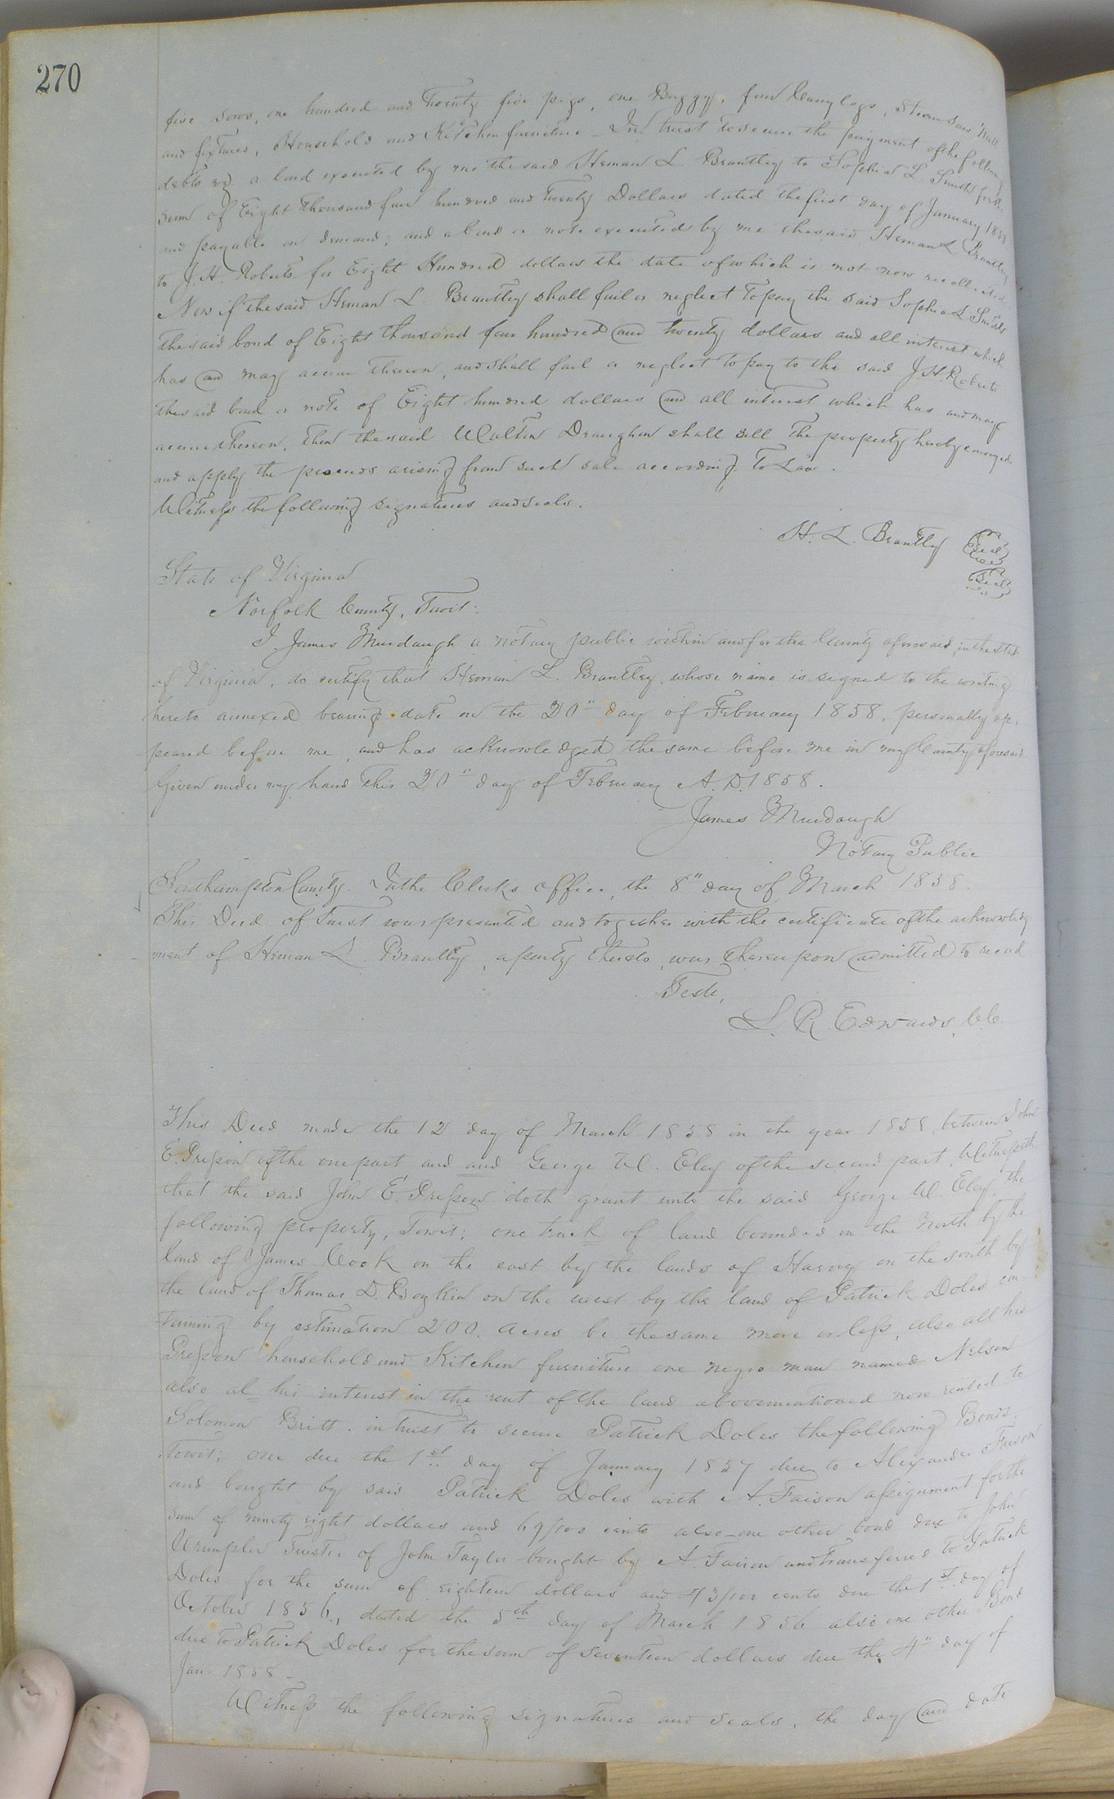 270
five sows, one hundred and Twenty five pigs, one Buggy, four Carry logs, Steam Saw Mill
and fixtures, Household and Kitchen furniture. In trust to secure the payment of the following
debts viz a bond executed by me the said Heman L. Brantley to Sophia L. Smith for the
sum of Eight Thousand four hundred and Twenty Dollars dated the first day of January 1858
and payable on demand; and a bond or note executed by me the said Heman L. Brantley
to J. H. Roberts for Eight Hundred dollars the date of which is not now recollected.
Now if the said Heman L. Brantley shall fail or neglect To pay the said Sophia L. Smith
the said bond of Eight thousand four hundred and twenty dollars and all interest which
has and may accrue thereon, and shall fail or neglect to pay to the said J. H. Roberts
the said bond or note of Eight hundred dollars and all interest which has and may
accrue thereon, then the said Walter Draughn shall sell the property hereby conveyed
and apply the proceeds arising from such sale according To Law.
Witness the following signatures and seals.
H. L. Brantley Seal
Seal
State of Virginia
Norfolk County, Towit:
I James Murdaugh a notary public within and for the County aforesaid, in the State
of Virginia, do certify that Heman L. Brantley, whose name is signed to the writing
hereto annexed bearing date on the 20" day of February 1858, personally ap-
peared before me, and has acknowledged the same before me in my County aforesaid
Given under my hand This 20" day of February A. D. 1858.
James Murdaugh
Notary Public
Southampton County. In the Clerks office, the 8" day of March 1858.
This Deed of Trust was presented and together with the certificate of the acknowledg
ment of Heman L. Brantley, a party thereto, was thereupon admitted to record
Teste,
L. R. Edwards, C.C.
This Deed made the 12 day of March 1858 in the year 1858, between John
E. Presson of the one part and and George W. Eley of the second part, Witnesseth
that the said John E Presson doth grant unto the said George W. Eley, the
following property, Towit; one track of land bounded on the North by the
land of James Cook on the east by the lands of Harvey on the south by
the land of Thomas D. Boykin on the west by the land of Patrick Doles con-
taining by estimation 200. acres be the same more or less, also all his
Presson household and Kitchen furniture one negro man named Nelson
also al his interest in the rent of the land abovementioned now rented to
Solomon Britt. in trust to secure Patrick Doles the following Bonds,
Towit; one due the 1st day of January 1857 due to Alexander Faison
and bought by said Patrick Doles with A. Faison assignment for the
sum of ninety eight dollars and 69/100 cents also one other bond due to John
Wrimpler Trustee of John Taylor bought by A. Faison and Transferred to Patrick
Doles for the sum of eighteen dollars and 43/100 cents due the 1st day of
October 1856, dated the 5th day of March 1856 also one other Bond
due to Patrick Doles for the sum of Seventeen dollars due the 4" day of
Jan. 1858 -
Witness the following signatures and seals, the day and date